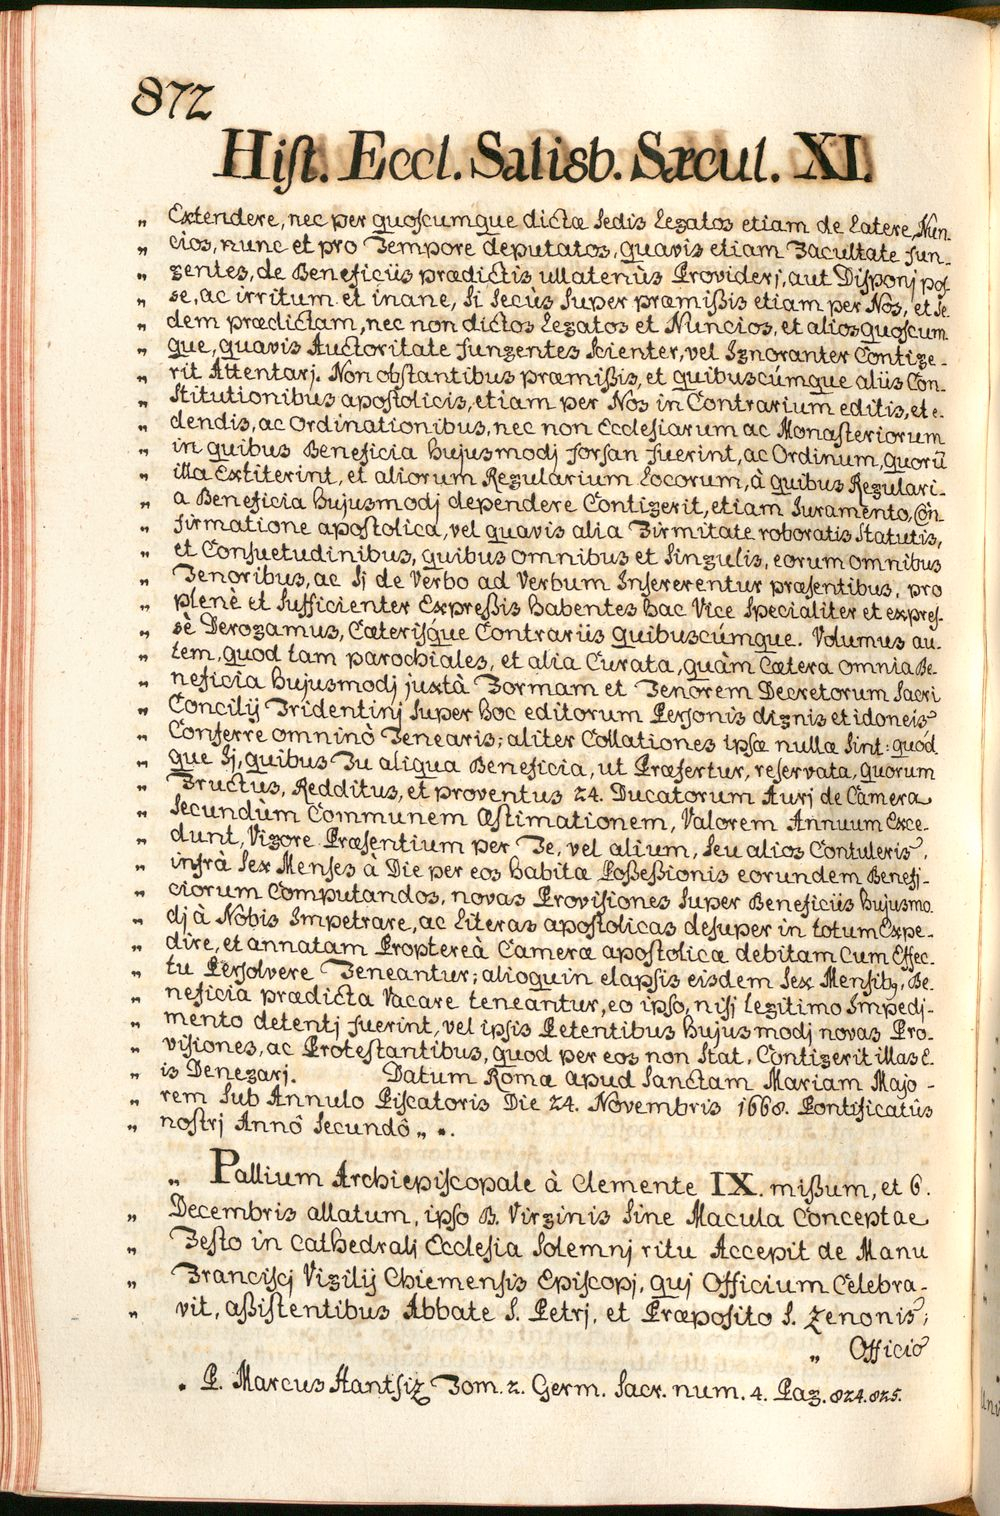 872
Hist. Eccl. Salisb. Sæcul. XI.
„ Extendere, nec per quoscumque dictæ Sedis Legatos etiam de Latere, Nun-
„ cios, nunc et pro Tempore deputatos, quavis etiam Facultate fun-
„ gentes, de Beneficiis prædictis ullatenùs Providerj, aut Disponj pos-
„ se, ac irritum et inane, Si Secùs Super præmißis etiam per Nos, et Se-
„ dem prædictam, nec non dictos Legatos et Nuncios, et alios quoscum
„ que, quavis Auctoritate fungentes Scienter, vel Ignoranter Contige-
„ rit Attentarj. Non obstantibus præmißis, et quibuscúmque aliis Con-
„ stitutionibus apostolicis, etiam per Nos in Contrarium editis, et e-
„ dendis, ac Ordinationibus, nec non Ecclesiarum ac Monasteriorum
„ in quibus Beneficia hujusmodj forsan fuerint, ac Ordinum, quorũ
„ illa Extiterint, et aliorum Regularium Locorum, à quibus Regulari-
„ a Beneficia hujusmodj dependere Contigerit, etiam Juramento, Con-
„ firmatione apostolica, vel quavis alia Firmitate roboratis Statutis,
„ et Consuetudinibus, quibus omnibus et Singulis, eorum omnibus
„ Tenoribus, ac Sj de Verbo ad Verbum Insererentur præsentibus, pro
„ plenè et Sufficienter Expreßis habentes hac Vice Specialiter et expres-
„ sè Derogamus, Cæterisque Contrariis quibuscúmque. Volumus au-
„ tem, quod tam parochiales, et alia Curata, quàm Cætera omnia Be-
„ neficia hujusmodj juxtà Formam et Tenorem Decretorum Sacri
„ Concilij Tridentinj Super hoc editorum Personis dignis et idoneis
„ Conferre omninò Tenearis; aliter Collationes ipsæ nullæ Sint: quód
„ que Sj, quibus Tu aliqua Beneficia, ut Præfertur, reservata, quorum
„ Fructus, Redditus, et proventus 24. Ducatorum Aurj de Camera
„ Secundùm Communem Æstimationem, Valorem Annuum Exce-
„ dunt, Vigore Præsentium per Te, vel alium, Seu alios Contuleris,
„ infrà Sex Menses à Die per eos habita Poßeßionis eorundem Benefi-
„ ciorum Computandos, novas Provisiones Super Beneficiis hujusmo
„ dj à Nobis Impetrare, ac Literas apostolicas desuper in totum Expe-
„ dire, et annatam Proptereà Cameræ apostolicæ debitam Cum Effec-
„ tu Persolvere Teneantur; alioquin elapsis eisdem Sex Mensibq, Be-
„ neficia prædicta Vacare teneantur, eo ipso, nisj Legitimo Impedj-
„ mento detentj fuerint, vel ipsis Petentibus hujusmodj novas Pro-
„ visiones, ac Protestantibus, quod per eos non Stat, Contigerit illas E-
„ is Denegarj. Datum Romæ apud Sanctam Mariam Majo-
„ rem Sub Annulo Piscatoris Die 24. Novembris 1668. Pontificatûs
„ nostrj Annô Secundô „ ".
„ Pallium Archiepiscopale à Clemente IX. mißum, et 6.
„ Decembris allatum, ipso B. Virginis Sine Macula Conceptae
„ Festo in Cathedralj Ecclesia Solemnj ritu Accepit de Manu
„ Franciscj Vigilij Chiemensis Episcopj, quj Officium Celebra-
„ vit, aßistentibus Abbate S. Petrj, et Præposito S. Zenonis;
„ Officio
. P. Marcus Hantsiz Tom. 2. Germ. Sacr. num. 4. Pag. 824. 825.